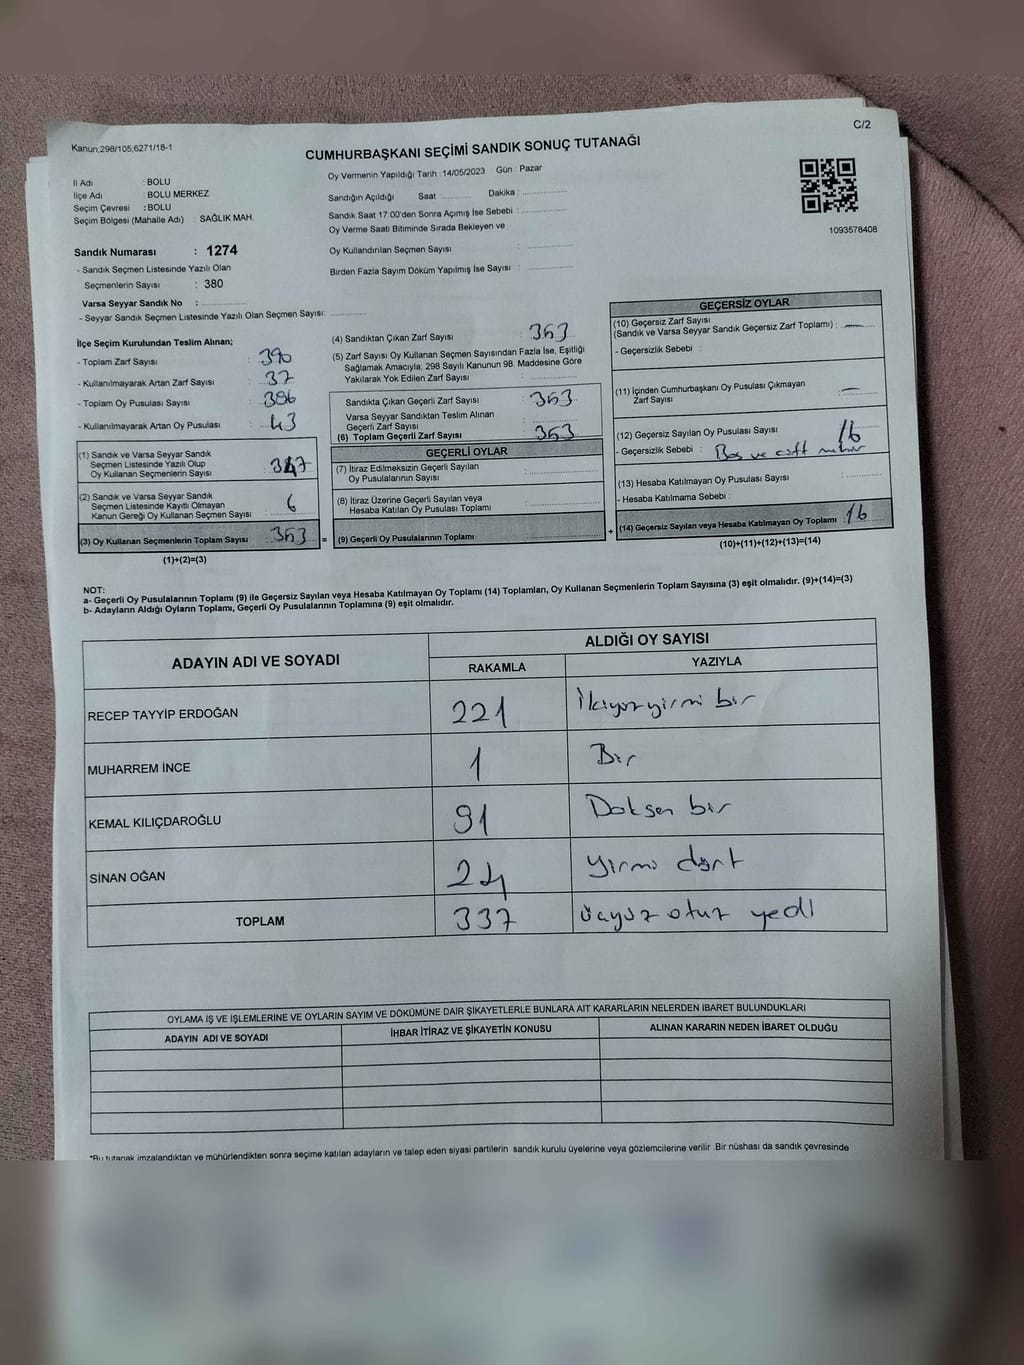 C/2
Kanun,298/105,6271/18-1
CUMHURBAŞKANI SEÇİMİ SANDIK SONUÇ TUTANAĞI
İl Adı : BOLU
İlçe Adı : BOLU MERKEZ
Seçim Çevresi : BOLU
Seçim Bölgesi (Mahalle Adı) : SAĞLIK MAH.
Sandık Numarası : 1274
- Sandık Seçmen Listesinde Yazılı Olan
Seçmenlerin Sayısı : 380
Varsa Seyyar Sandık No :
- Seyyar Sandık Seçmen Listesinde Yazılı Olan Seçmen Sayısı:
Oy Vermenin Yapıldığı Tarih : 14/05/2023 Gün : Pazar
Sandığın Açıldığı Saat : Dakika :
Sandık Saat 17:00'den Sonra Açımış İse Sebebi :
Oy Verme Saati Bitiminde Sırada Bekleyen ve
Oy Kullandırılan Seçmen Sayısı :
Birden Fazla Sayım Döküm Yapılmış İse Sayısı :
1093578408
İlçe Seçim Kurulundan Teslim Alınan;
- Toplam Zarf Sayısı : 390
- Kullanılmayarak Artan Zarf Sayısı : 37
- Toplam Oy Pusulası Sayısı : 396
- Kullanılmayarak Artan Oy Pusulası : 43
(1) Sandık ve Varsa Seyyar Sandık
Seçmen Listesinde Yazılı Olup
Oy Kullanan Seçmenlerin Sayısı : 347
(2) Sandık ve Varsa Seyyar Sandık
Seçmen Listesinde Kayıtlı Olmayan
Kanun Gereği Oy Kullanan Seçmen Sayısı : 6
(3) Oy Kullanan Seçmenlerin Toplam Sayısı : 353 =
(1)+(2)=(3)
(4) Sandıktan Çıkan Zarf Sayısı : 353
(5) Zarf Sayısı Oy Kullanan Seçmen Sayısından Fazla İse, Eşitliği
Sağlamak Amacıyla, 298 Sayılı Kanunun 98. Maddesine Göre
Yakılarak Yok Edilen Zarf Sayısı :
Sandıkta Çıkan Geçerli Zarf Sayısı : 353
Varsa Seyyar Sandıktan Teslim Alınan
Geçerli Zarf Sayısı :
(6) Toplam Geçerli Zarf Sayısı : 353
GEÇERLİ OYLAR
(7) İtiraz Edilmeksizin Geçerli Sayılan
Oy Pusulalarının Sayısı :
(8) İtiraz Üzerine Geçerli Sayılan veya
Hesaba Katılan Oy Pusulası Toplamı :
(9) Geçerli Oy Pusulalarının Toplamı : +
GEÇERSİZ OYLAR
(10) Geçersiz Zarf Sayısı
(Sandık ve Varsa Seyyar Sandık Geçersiz Zarf Toplamı) : —
- Geçersizlik Sebebi :
(11) İçinden Cumhurbaşkanı Oy Pusulası Çıkmayan
Zarf Sayısı : —
(12) Geçersiz Sayılan Oy Pusulası Sayısı : 16
- Geçersizlik Sebebi : Boş ve çift mühür
(13) Hesaba Katılmayan Oy Pusulası Sayısı :
- Hesaba Katılmama Sebebi :
(14) Geçersiz Sayılan veya Hesaba Katılmayan Oy Toplamı : 16
(10)+(11)+(12)+(13)=(14)
NOT:
a- Geçerli Oy Pusulalarının Toplamı (9) ile Geçersiz Sayılan veya Hesaba Katılmayan Oy Toplamı (14) Toplamları, Oy Kullanan Seçmenlerin Toplam Sayısına (3) eşit olmalıdır. (9)+(14)=(3)
b- Adayların Aldığı Oyların Toplamı, Geçerli Oy Pusulalarının Toplamına (9) eşit olmalıdır.
ADAYIN ADI VE SOYADI
ALDIĞI OY SAYISI
RAKAMLA YAZIYLA
RECEP TAYYİP ERDOĞAN 221 İkiyüzyirmi bir
MUHARREM İNCE 1 Bir
KEMAL KILIÇDAROĞLU 91 Doksan bir
SİNAN OĞAN 24 yirmi dört
TOPLAM 337 üçyüz otuz yedi
OYLAMA İŞ VE İŞLEMLERİNE VE OYLARIN SAYIM VE DÖKÜMÜNE DAİR ŞİKAYETLERLE BUNLARA AİT KARARLARIN NELERDEN İBARET BULUNDUKLARI
ADAYIN ADI VE SOYADI İHBAR İTİRAZ VE ŞİKAYETİN KONUSU ALINAN KARARIN NEDEN İBARET OLDUĞU
*Bu tutanak imzalandıktan ve mühürlendikten sonra seçime katılan adayların ve talep eden siyasi partilerin sandık kurulu üyelerine veya gözlemcilerine verilir .Bir nüshası da sandık çevresinde